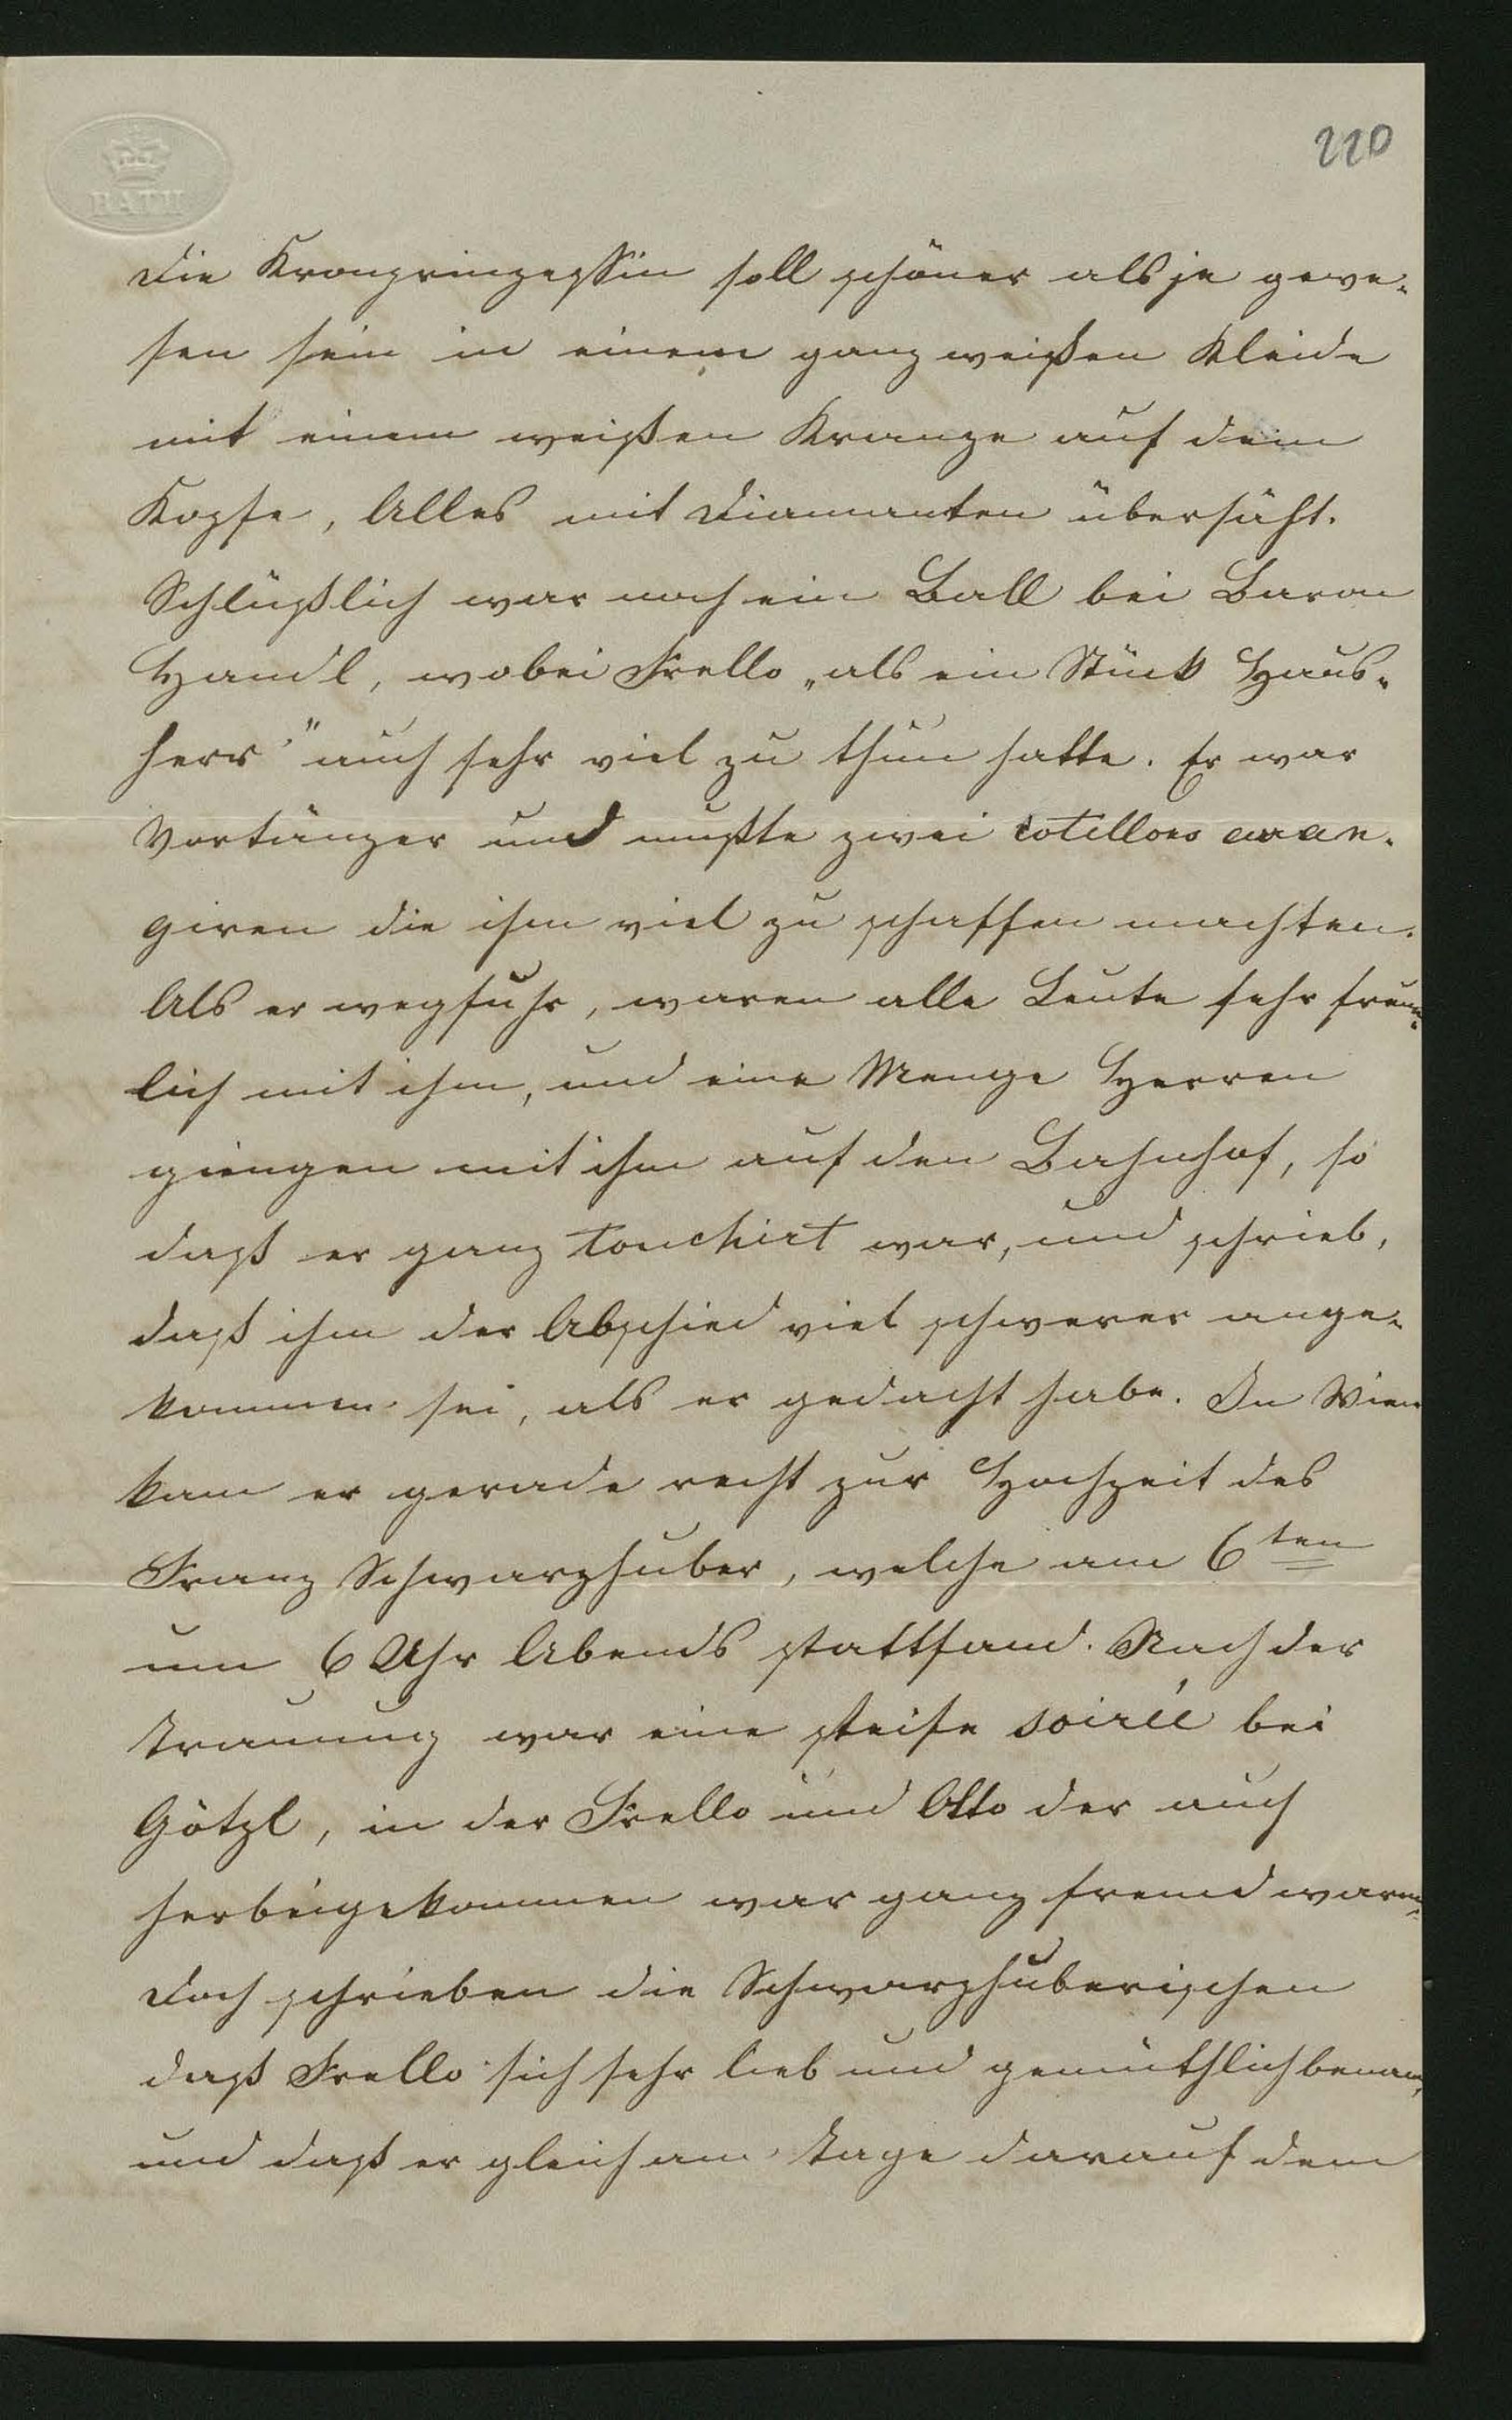 220
BATH
Die Kronprinzessin soll schöner als je gewe-
sen sein in einem ganz weißen Kleide
mit einem weißen Kranze auf dem
Kopfe, Alles mit Diamanten übersäht.
Schlüßlich war noch ein Ball bei Baron
Handl, wobei Frello „als ein Stück Haus-
herr" auch sehr viel zu thun hatte. Er war
Vortänzer und mußte zwei cotillons aran-
giren die ihm viel zu schaffen machten.
Als er wegfuhr, waren alle Leute sehr freun-
lich mit ihm, und eine Menge Herren
giengen mit ihm auf den Bahnhof, so
daß er ganz touchirt war, und schrieb,
daß ihm der Abschied viel schwerer ange-
kommen sei, als er gedacht habe. In Wien
kam er gerade recht zur Hochzeit des
Franz Schwarzhuber, welche am 6ten
um 6 Uhr Abends stattfand. Nach der
Trauung war eine steife soirée bei
Götzl, in der Frello und Otto der auch
herbeigekommen war ganz fremd waren,
doch schrieben die Schwarzhuberischen
daß Frello sich sehr lieb und gemüthlich benam,
und daß er gleich am Tage darauf dem